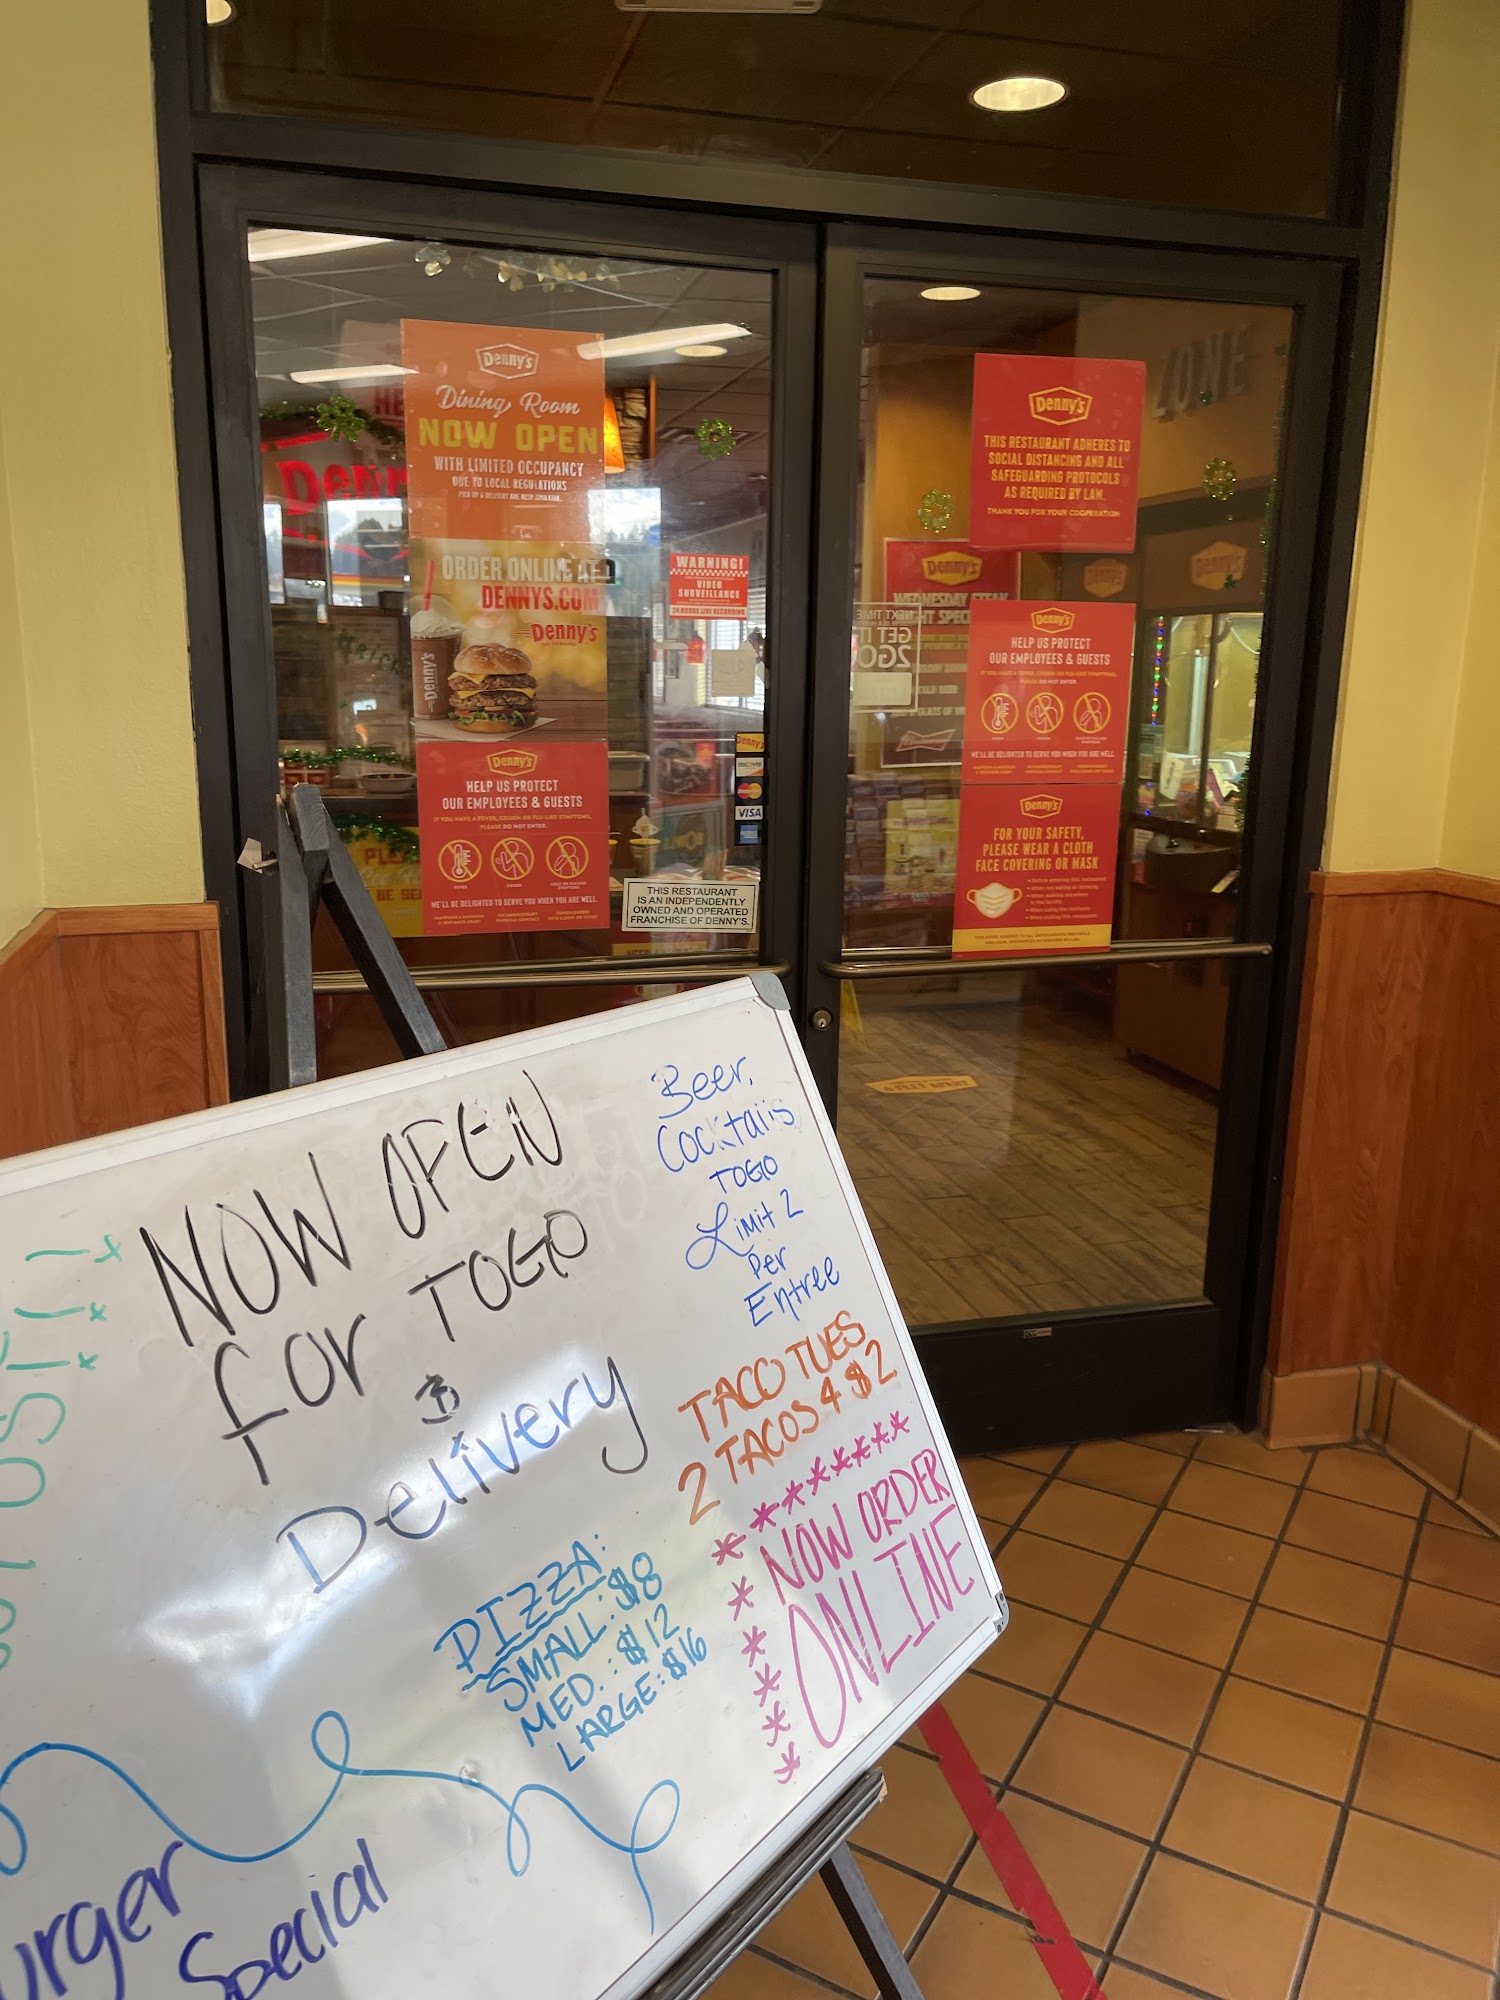 Denny's
Dining Room
NOW OPEN
WITH LIMITED OCCUPANCY
DUE TO LOCAL REGULATIONS
ORDER ONLINE AT
DENNYS.COM
Denny's
Denny's
Denny's
HELP US PROTECT
OUR EMPLOYEES & GUESTS
IF YOU HAVE A FEVER, COUGH OR FLU-LIKE SYMPTOMS,
PLEASE DO NOT ENTER.
FEVER
COUGH
WE'LL BE DELIGHTED TO SERVE YOU WHEN YOU ARE WELL.
WARNING!
VIDEO
SURVEILLANCE
24 HOURS LIVE RECORDING
Denny's
DISCOVER
VISA
THIS RESTAURANT
IS AN INDEPENDENTLY
OWNED AND OPERATED
FRANCHISE OF DENNY'S.
Denny's
THIS RESTAURANT ADHERES TO
SOCIAL DISTANCING AND ALL
SAFEGUARDING PROTOCOLS
AS REQUIRED BY LAW.
THANK YOU FOR YOUR COOPERATION
Denny's
WEDNESDAY STEAK
NEXT TIME
GET IT
2GO
Denny's
HELP US PROTECT
OUR EMPLOYEES & GUESTS
IF YOU HAVE A FEVER, COUGH OR FLU-LIKE SYMPTOMS,
PLEASE DO NOT ENTER.
WE'LL BE DELIGHTED TO SERVE YOU WHEN YOU ARE WELL.
Denny's
FOR YOUR SAFETY,
PLEASE WEAR A CLOTH
FACE COVERING OR MASK
6 FEET APART
NOW OPEN
for TOGO
Delivery
Beer,
Cocktails
TOGO
Limit 2
Per
Entree
TACO TUES
2 TACOS 4 $2
NOW ORDER
ONLINE
PIZZA:
SMALL: $8
MED.: $12
LARGE: $16
urger
Special